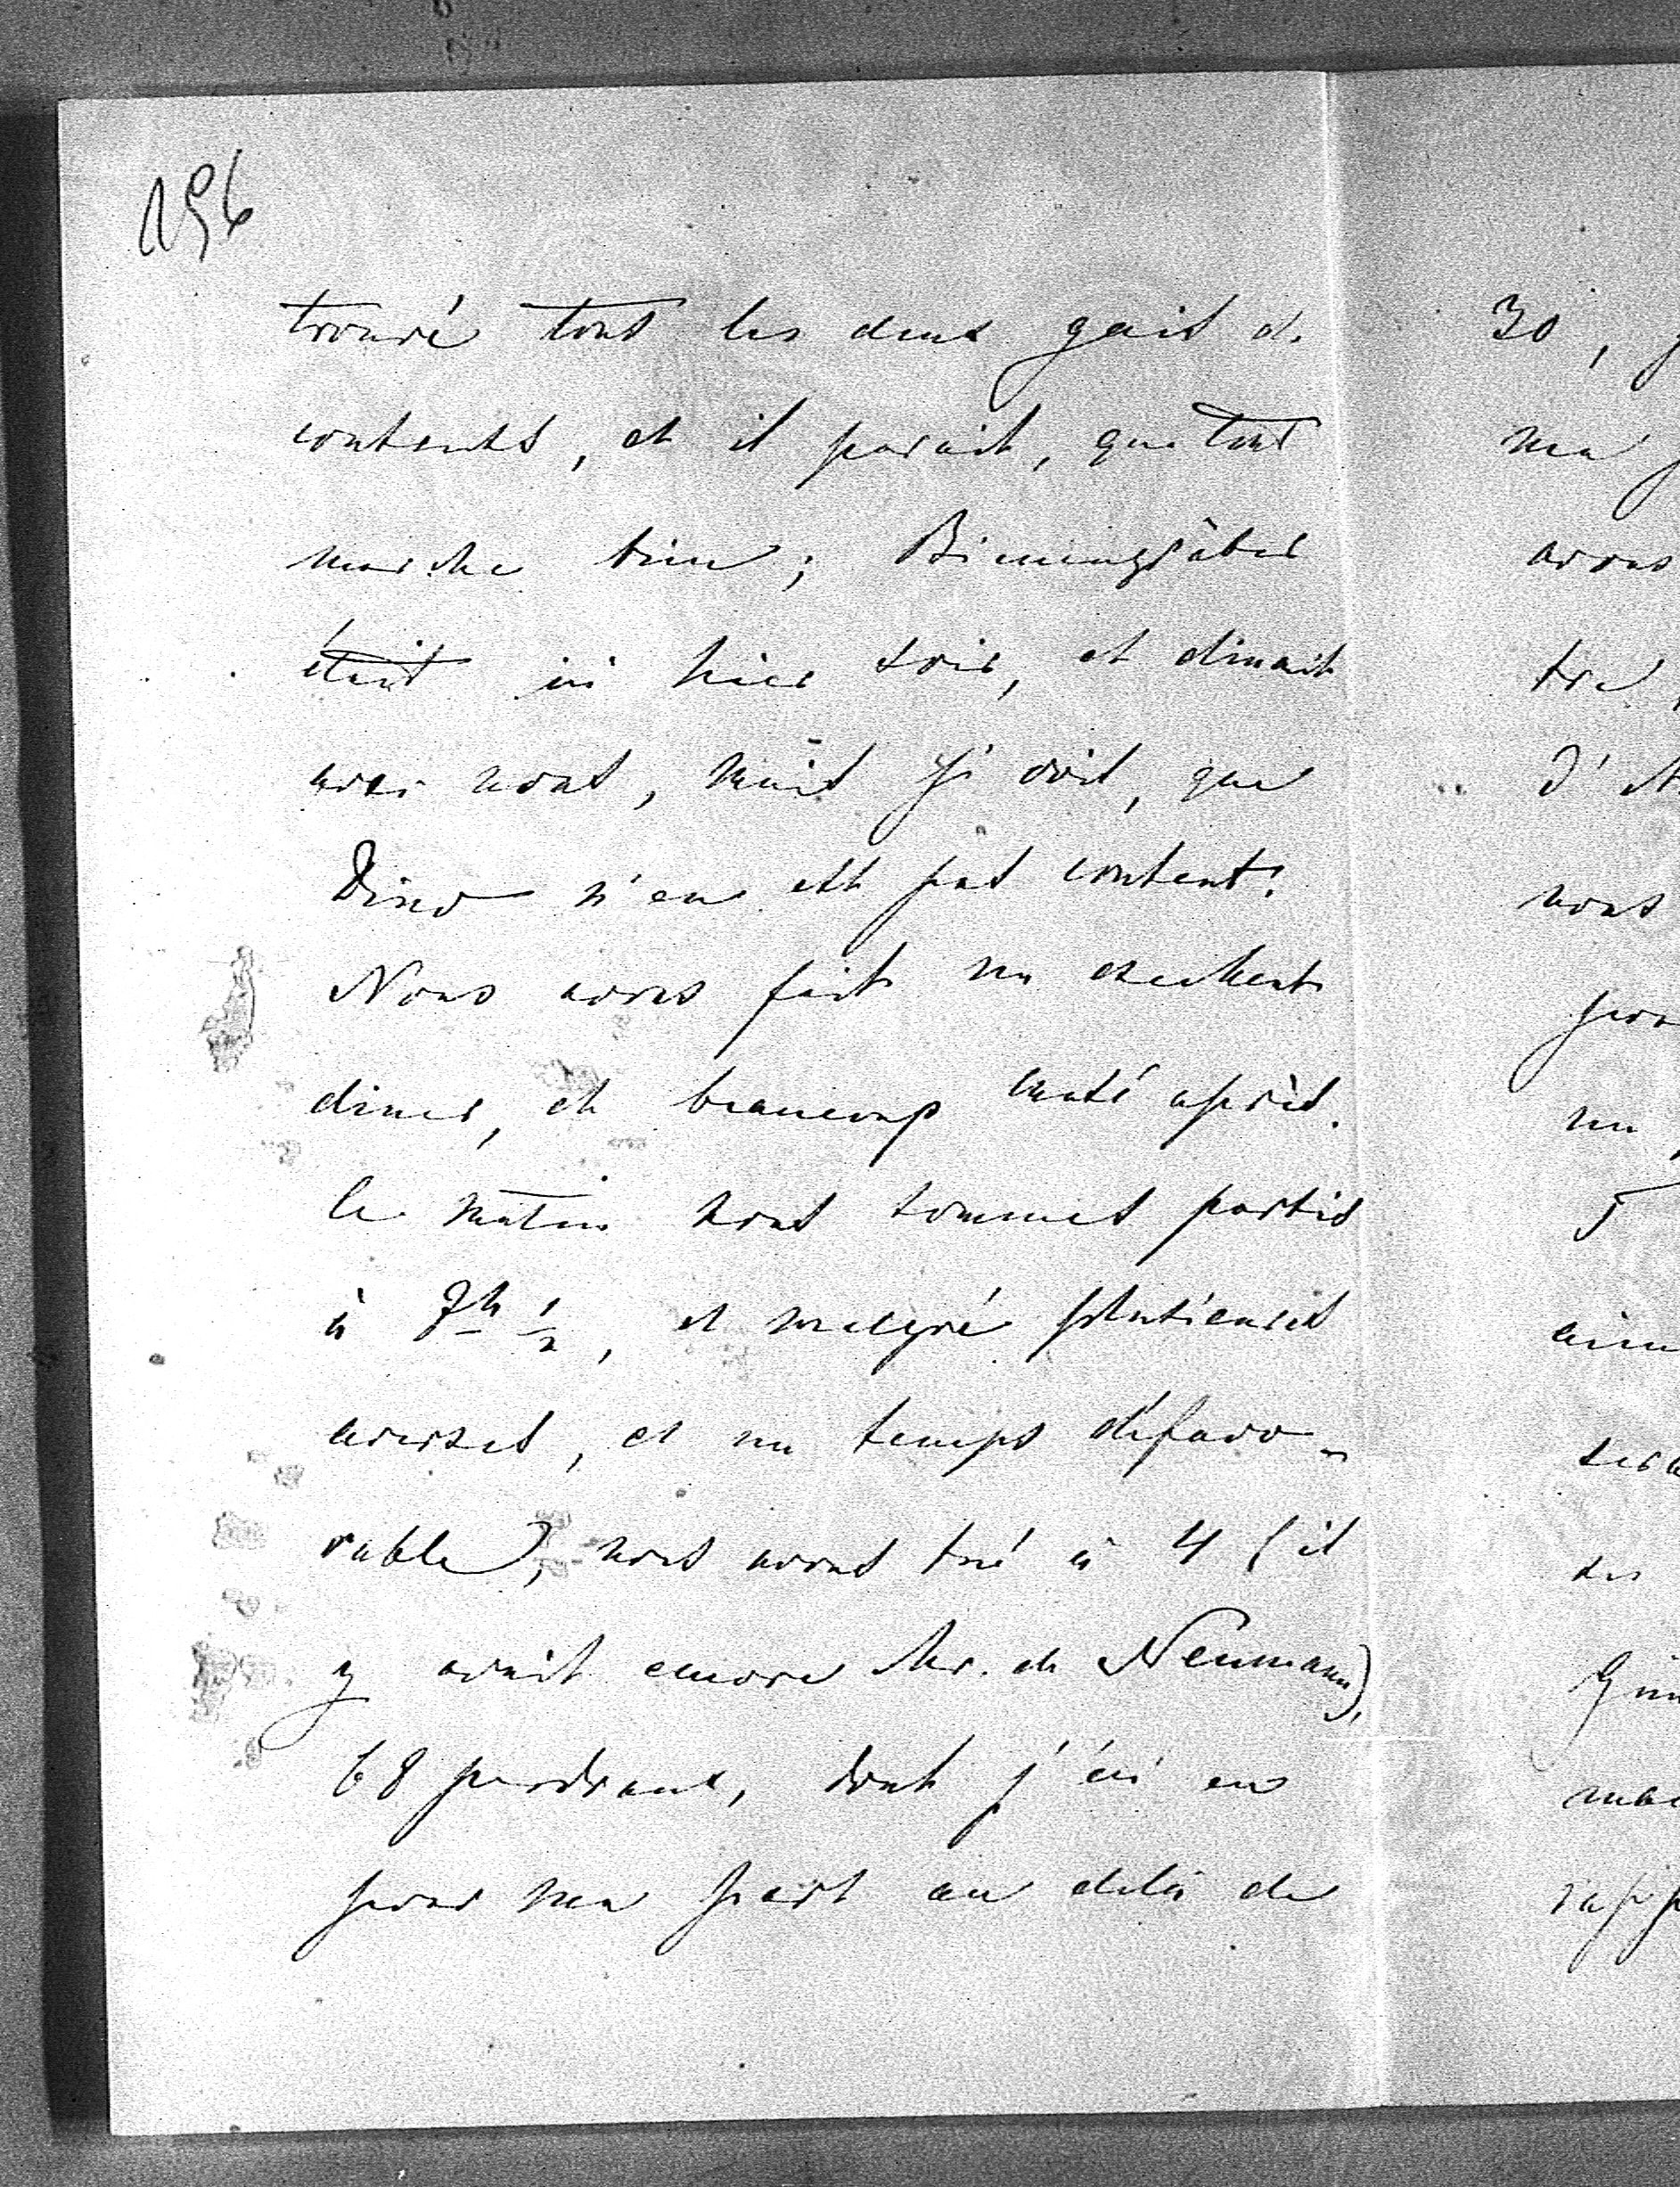 196
trouvé tous les deux gais et
contents, et il parait, que tout
marche bien;
était ici hier soir, et dinait
avec nous, mais je vois, que
Dino n'en est pas content.
Nous avons fait un excellent
diner, et beaucoup après.
le matin nous sommes partis
à 7h 1/2, et malgré plusieures
averses, et un temps défavo-
rable, nous avons tué à 4 (il
y avait encore Mr. de Neumann),
68 perdraux, dont j'ai eu
pour ma part au delà de
30,
ma
avons
tre
d'
nous
un
5